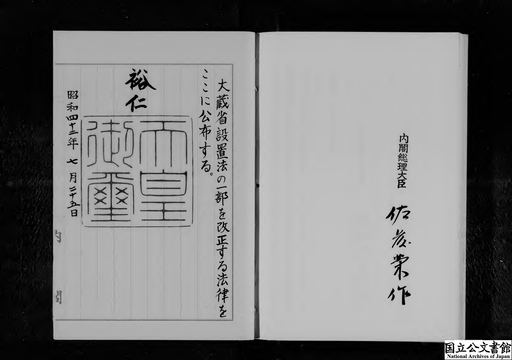 大蔵省設置法の一部を改正する法律を
ここに公布する。
裕仁
天皇
御璽
昭和四十二年七月二十五日
内閣総理大臣
佐藤榮作
国立公文書館
National Archives of Japan